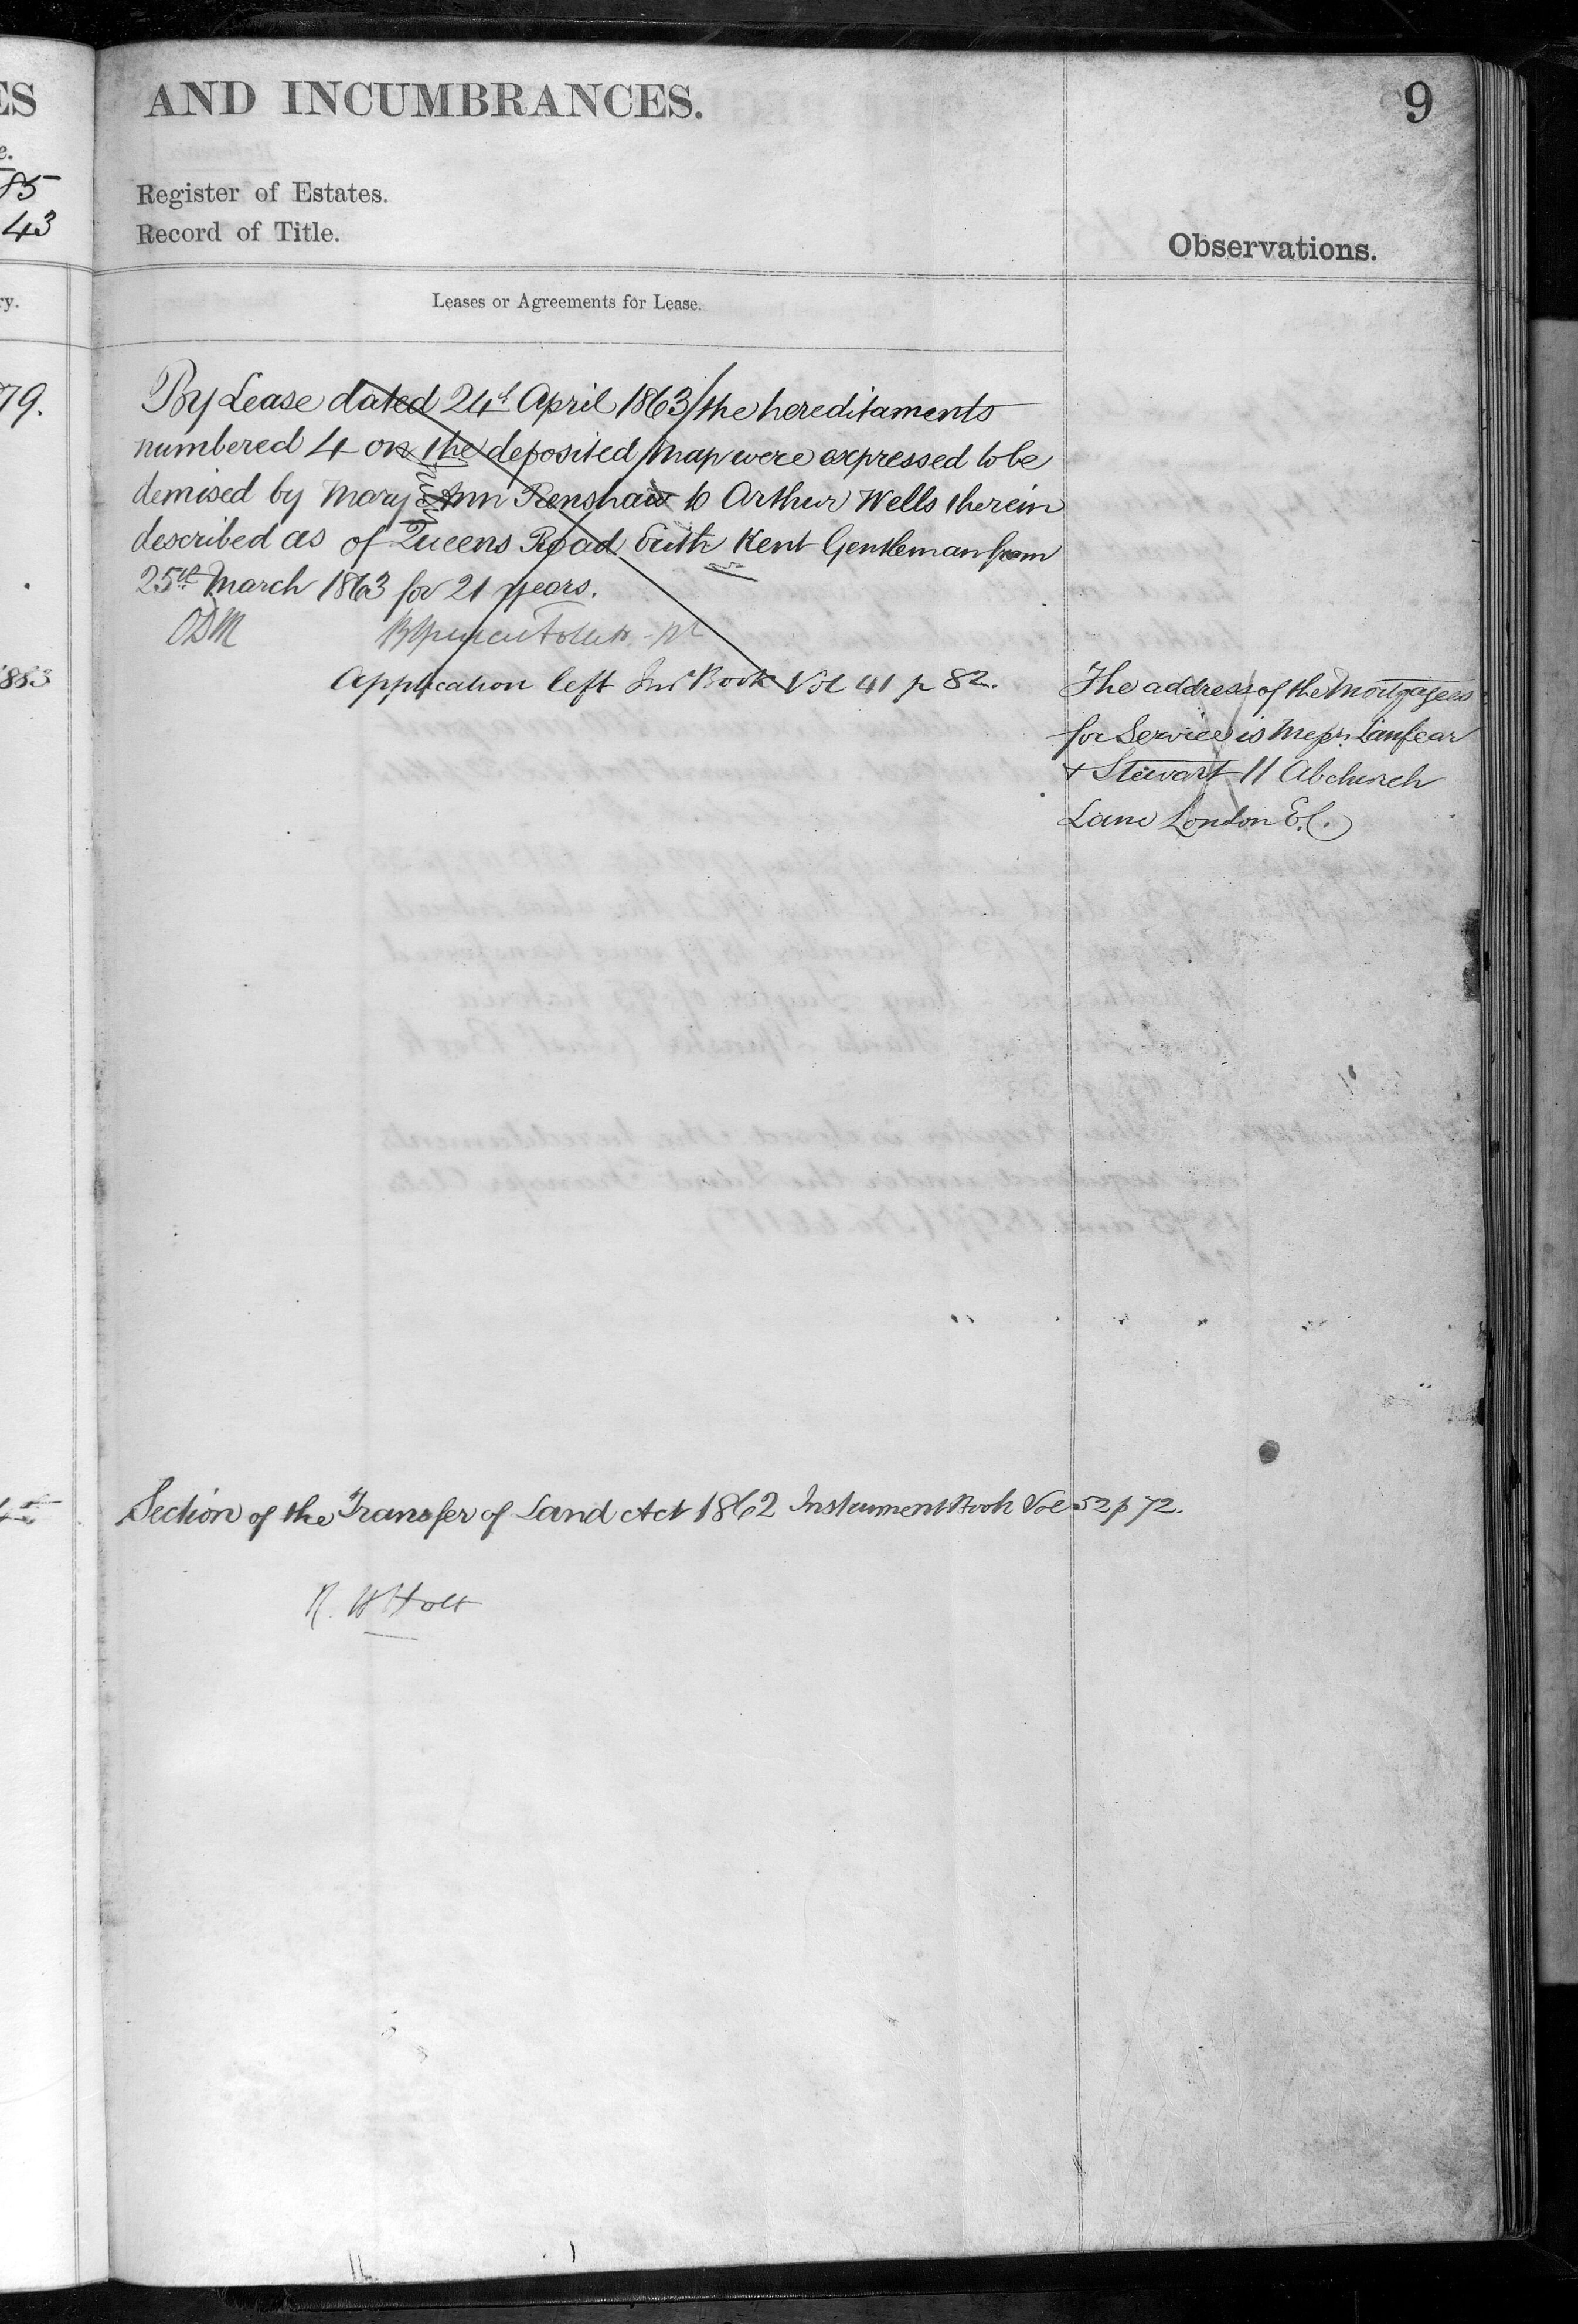 ES
AND INCUMBRANCES.
9
e.
85
43
Register of Estates.
Record of Title.
Observations.
ry.
Leases or Agreements for Lease.
79.
By Lease dated 24th April 1863 / the hereditaments
numbered 4 on the deposited map were expressed to be
demised by Mary Ann Renshaw to Arthur Wells therein
described as of Queens Road Erith Kent Gentleman from
25th March 1863 for 21 years.
ODM
Application left Inst Book Vol 41 p 82.
1883
The address of the Mortgagees
for Service is Messrs. Lanfear
& Stewart 11 Abchurch
Lane London E.C.
Section of the Transfer of Land Act 1862 Instrument Book Vol 52 p 72.
R. H Holt